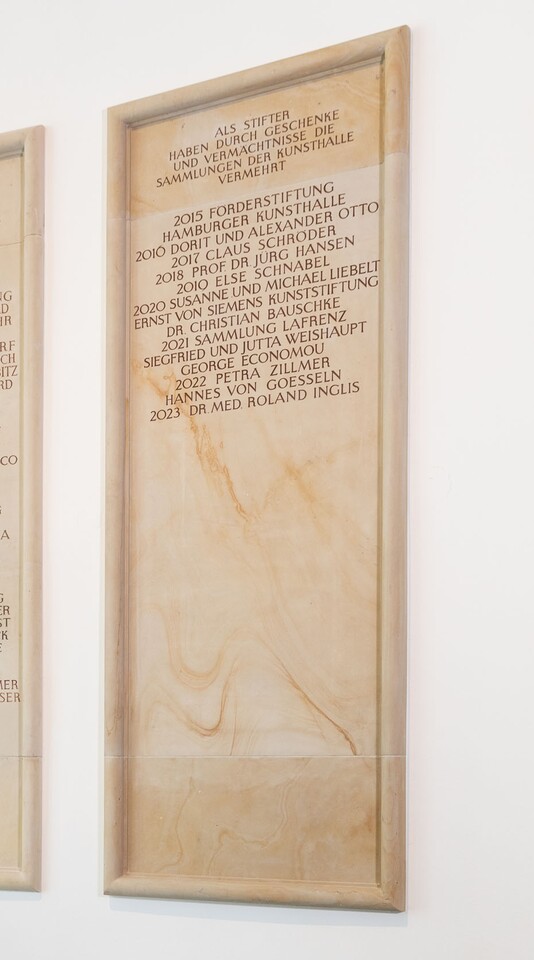 ALS STIFTER
HABEN DURCH GESCHENKE
UND VERMÄCHTNISSE DIE
SAMMLUNGEN DER KUNSTHALLE
VERMEHRT
2015 FÖRDERSTIFTUNG
HAMBURGER KUNSTHALLE
2016 DORIT UND ALEXANDER OTTO
2017 CLAUS SCHRÖDER
2018 PROF. DR. JÜRG HANSEN
2019 ELSE SCHNABEL
2020 SUSANNE UND MICHAEL LIEBELT
ERNST VON SIEMENS KUNSTSTIFTUNG
DR. CHRISTIAN BAUSCHKE
2021 SAMMLUNG LAFRENZ
SIEGFRIED UND JUTTA WEISHAUPT
GEORGE ECONOMOU
2022 PETRA ZILLMER
HANNES VON GOESSELN
2023 DR. MED. ROLAND INGLIS